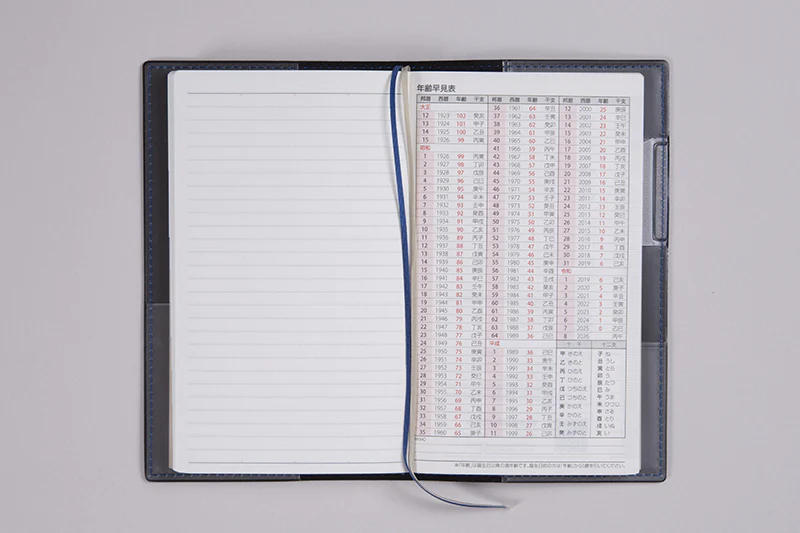 年齢早見表
邦暦 西暦 年齢 干支
大正
12 1923 102 癸亥
13 1924 101 甲子
14 1925 100 乙丑
15 1926 99 丙寅
昭和
1 1926 99 丙寅
2 1927 98 丁卯
3 1928 97 戊辰
4 1929 96 己巳
5 1930 95 庚午
6 1931 94 辛未
7 1932 93 壬申
8 1933 92 癸酉
9 1934 91 甲戌
10 1935 90 乙亥
11 1936 89 丙子
12 1937 88 丁丑
13 1938 87 戊寅
14 1939 86 己卯
15 1940 85 庚辰
16 1941 84 辛巳
17 1942 83 壬午
18 1943 82 癸未
19 1944 81 甲申
20 1945 80 乙酉
21 1946 79 丙戌
22 1947 78 丁亥
23 1948 77 戊子
24 1949 76 己丑
25 1950 75 庚寅
26 1951 74 辛卯
27 1952 73 壬辰
28 1953 72 癸巳
29 1954 71 甲午
30 1955 70 乙未
31 1956 69 丙申
32 1957 68 丁酉
33 1958 67 戊戌
34 1959 66 己亥
35 1960 65 庚子
邦暦 西暦 年齢 干支
36 1961 64 辛丑
37 1962 63 壬寅
38 1963 62 癸卯
39 1964 61 甲辰
40 1965 60 乙巳
41 1966 59 丙午
42 1967 58 丁未
43 1968 57 戊申
44 1969 56 己酉
45 1970 55 庚戌
46 1971 54 辛亥
47 1972 53 壬子
48 1973 52 癸丑
49 1974 51 甲寅
50 1975 50 乙卯
51 1976 49 丙辰
52 1977 48 丁巳
53 1978 47 戊午
54 1979 46 己未
55 1980 45 庚申
56 1981 44 辛酉
57 1982 43 壬戌
58 1983 42 癸亥
59 1984 41 甲子
60 1985 40 乙丑
61 1986 39 丙寅
62 1987 38 丁卯
63 1988 37 戊辰
64 1989 36 己巳
平成
1 1989 36 己巳
2 1990 35 庚午
3 1991 34 辛未
4 1992 33 壬申
5 1993 32 癸酉
6 1994 31 甲戌
7 1995 30 乙亥
8 1996 29 丙子
9 1997 28 丁丑
10 1998 27 戊寅
11 1999 26 己卯
邦暦 西暦 年齢 干支
12 2000 25 庚辰
13 2001 24 辛巳
14 2002 23 壬午
15 2003 22 癸未
16 2004 21 甲申
17 2005 20 乙酉
18 2006 19 丙戌
19 2007 18 丁亥
20 2008 17 戊子
21 2009 16 己丑
22 2010 15 庚寅
23 2011 14 辛卯
24 2012 13 壬辰
25 2013 12 癸巳
26 2014 11 甲午
27 2015 10 乙未
28 2016 9 丙申
29 2017 8 丁酉
30 2018 7 戊戌
31 2019 6 己亥
令和
1 2019 6 己亥
2 2020 5 庚子
3 2021 4 辛丑
4 2022 3 壬寅
5 2023 2 癸卯
6 2024 1 甲辰
7 2025 0 乙巳
8 2026 丙午
十干
甲 きのえ
乙 きのと
丙 ひのえ
丁 ひのと
戊 つちのえ
己 つちのと
庚 かのえ
辛 かのと
壬 みずのえ
癸 みずのと
十二支
子 ね
丑 うし
寅 とら
卯 う
辰 たつ
巳 み
午 うま
未 ひつじ
申 さる
酉 とり
戌 いぬ
亥 い
MEMO
※「年齢」は誕生日以後の満年齢です。誕生日前の方は「年齢」から1歳を引いてください。